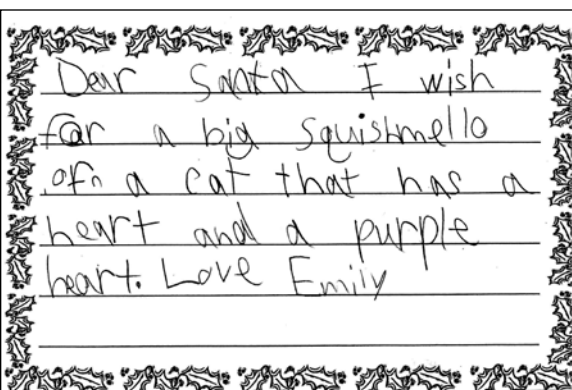 Dear Santa I wish
for a big squishmello
ofn a cat that has a
heart and a purple
heart. Love Emily